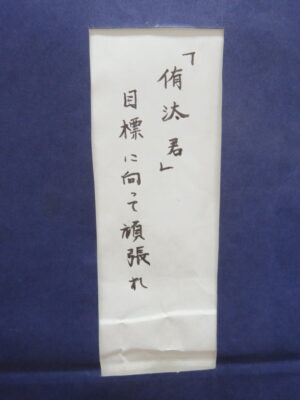 「侑汰君」
目標に向って頑張れ